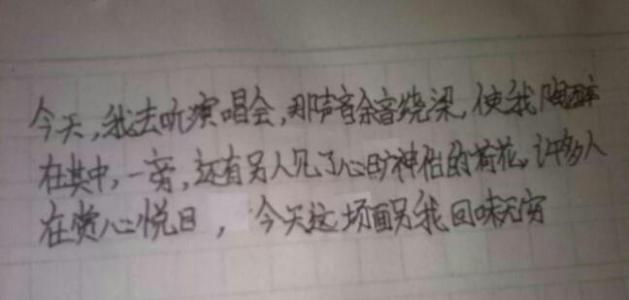 今天,我去听演唱会,那声音余音绕梁,使我陶醉
在其中,一旁,还有另人见了心旷神怡的荷花,许多人
在赏心悦目,今天这场面另我回味无穷